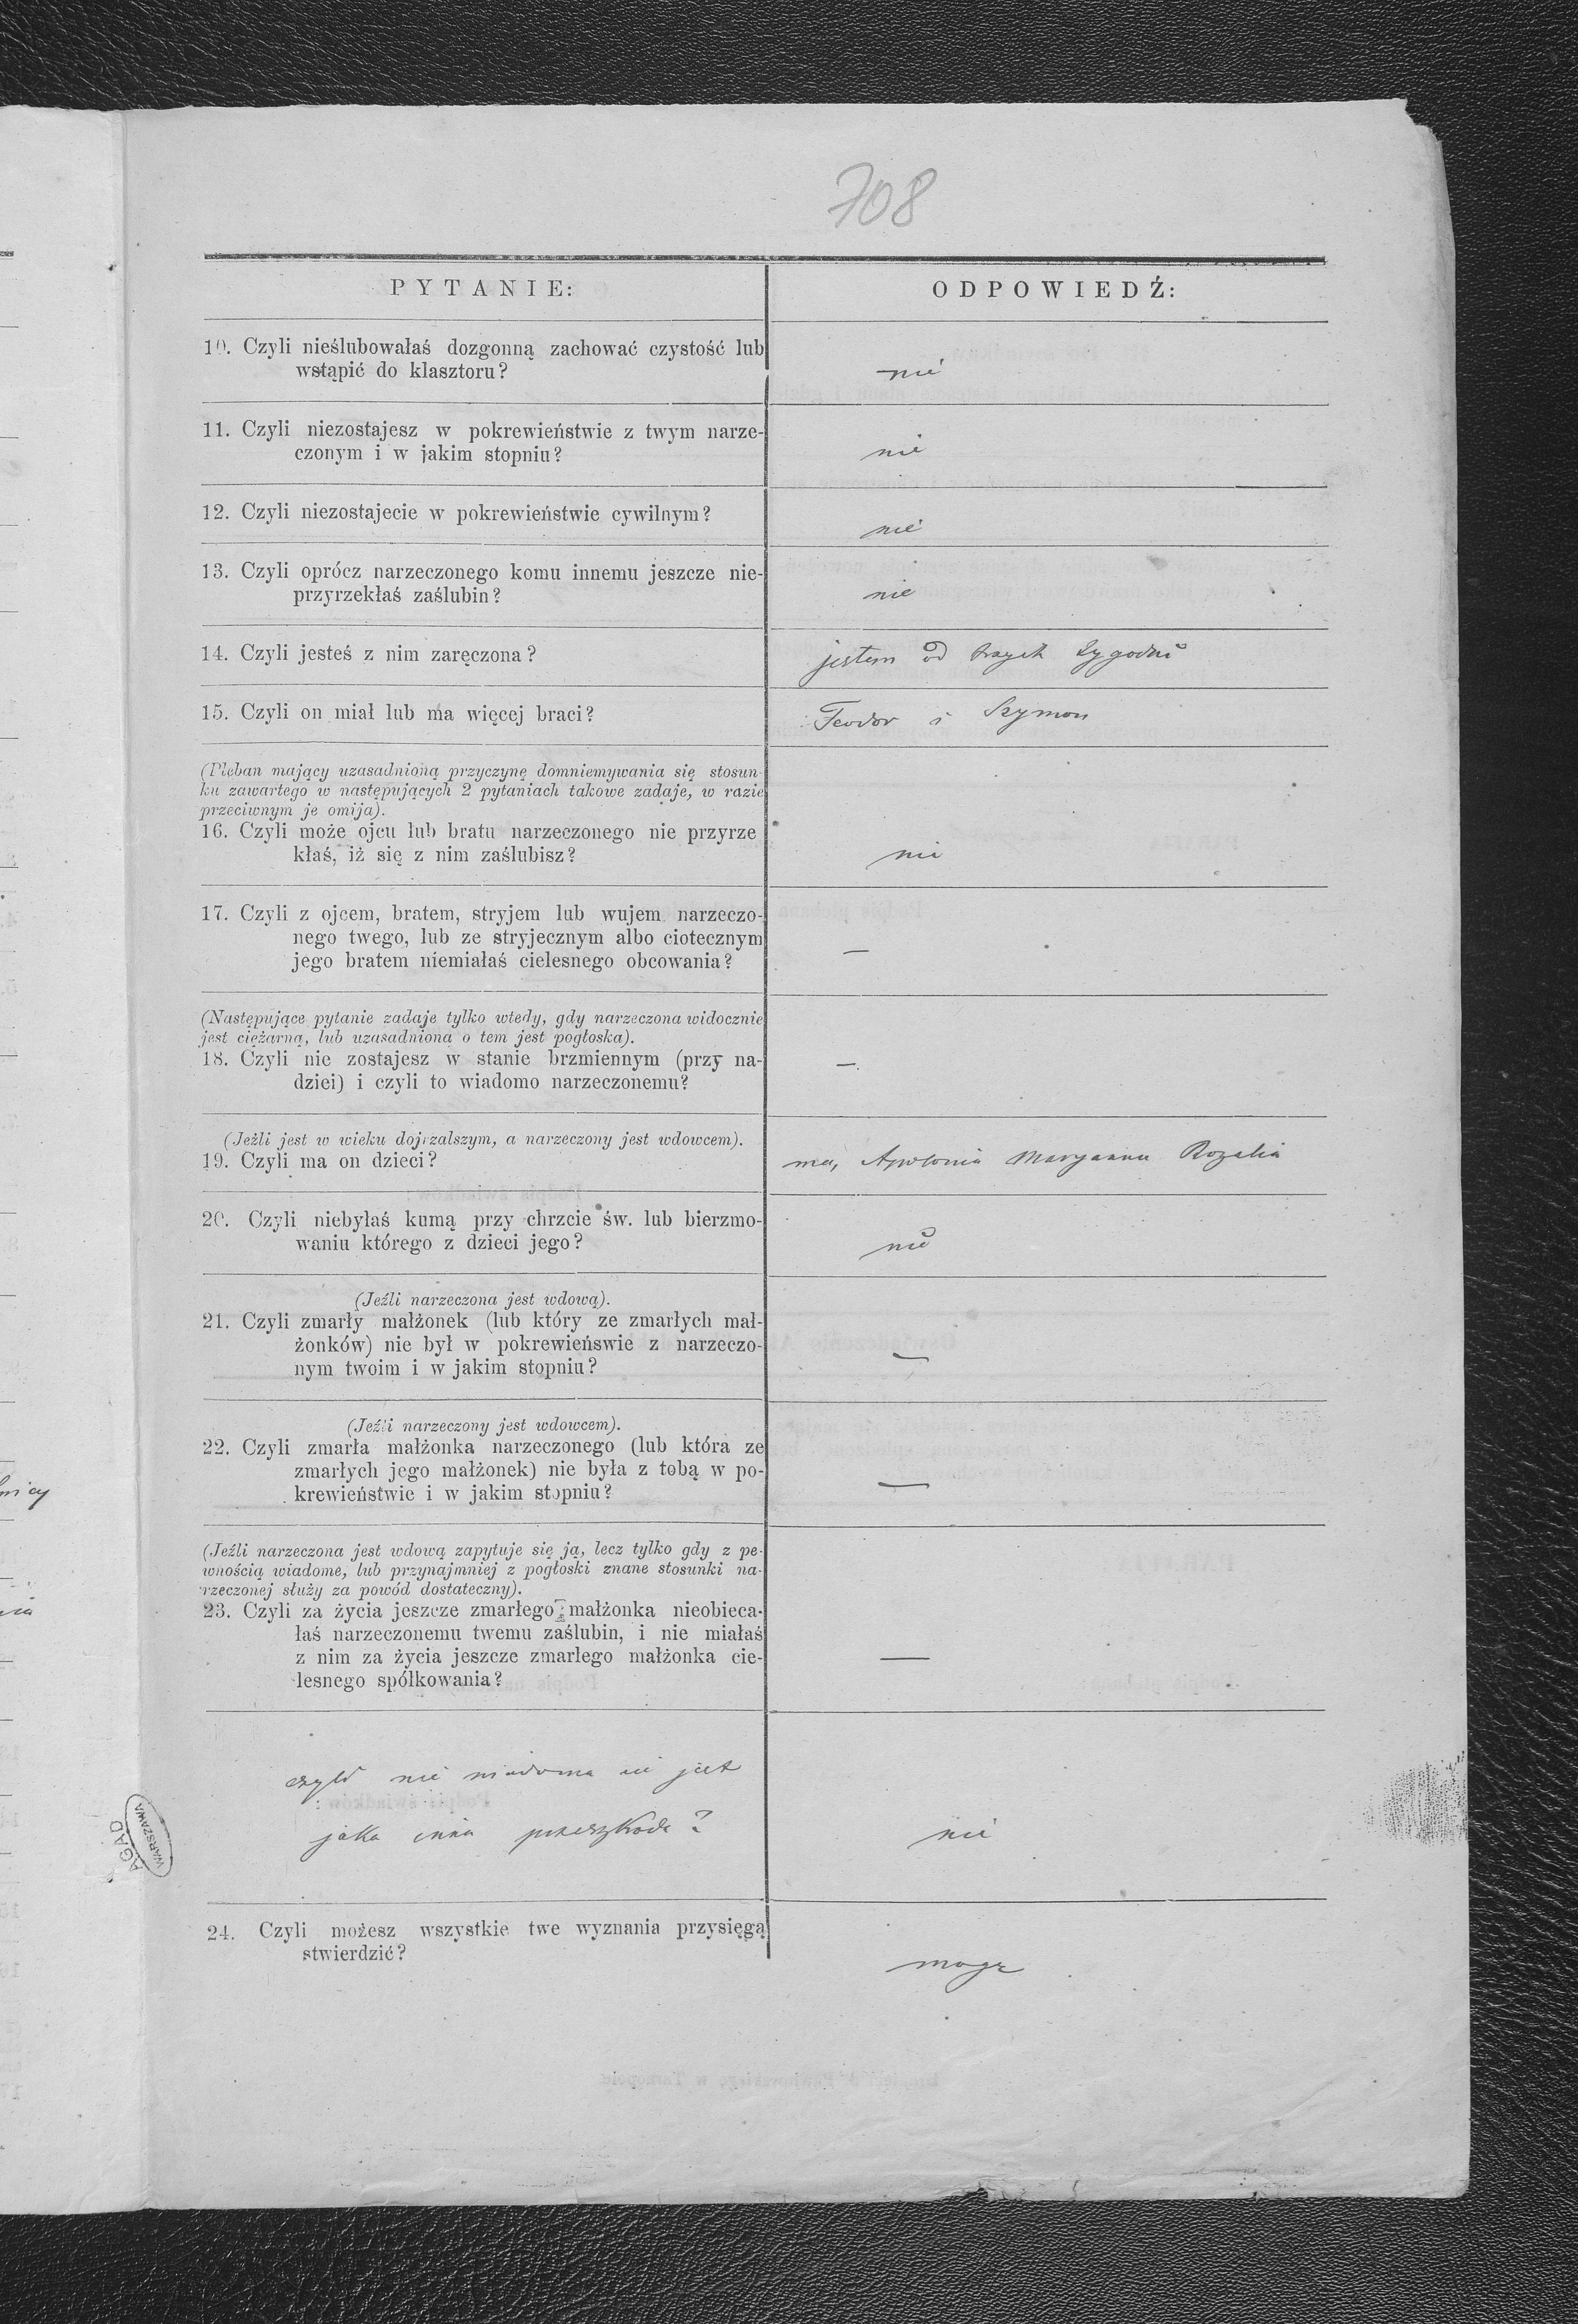 708
PYTANIE:
ODPOWIEDŹ:
10. Czyli nieślubowałaś dozgonną zachować czystość lub
wstąpić do klasztoru?
nie
11. Czyli niezostajesz w pokrewieństwie z twym narze-
czonym i w jakim stopniu?
nie
12. Czyli niezostajecie w pokrewieństwie cywilnym?
nie
13. Czyli oprócz narzeczonego komu innemu jeszcze nie-
przyrzekłaś zaślubin?
nie
14. Czyli jesteś z nim zaręczona?
jestem od trzech tygodni
15. Czyli on miał lub ma więcej braci?
Teodor i Szymon
(Pleban mający uzasadnioną przyczynę domniemywania się stosun-
ku zawartego w następujących 2 pytaniach takowe zadaje, w razie
przeciwnym je omija).
16. Czyli może ojcu lub bratu narzeczonego nie przyrze
kłaś, iż się z nim zaślubisz?
nie
17. Czyli z ojcem, bratem, stryjem lub wujem narzeczo-
nego twego, lub ze stryjecznym albo ciotecznym
jego bratem niemiałaś cielesnego obcowania?
—
(Następujące pytanie zadaje tylko wtedy, gdy narzeczona widocznie
jest ciężarną, lub uzasadniona o tem jest pogłoska).
18. Czyli nie zostajesz w stanie brzmiennym (przy na-
dziei) i czyli to wiadomo narzeczonemu?
—
(Jeżli jest w wieku dojrzalszym, a narzeczony jest wdowcem).
19. Czyli ma on dzieci?
ma, Apolonia Maryanna Rozalia
20. Czyli niebyłaś kumą przy chrzcie św. lub bierzmo-
waniu którego z dzieci jego?
nie
(Jeźli narzeczona jest wdową).
21. Czyli zmarły małżonek (lub który ze zmarłych mał-
żonków) nie był w pokrewieńswie z narzeczo-
nym twoim i w jakim stopniu?
—
(Jeźli narzeczony jest wdowcem).
22. Czyli zmarła małżonka narzeczonego (lub która ze
zmarłych jego małżonek) nie była z tobą w po-
krewieństwie i w jakim stopniu?
—
(Jeźli narzeczona jest wdową zapytuje się ją, lecz tylko gdy z pe-
wnością wiadome, lub przynajmniej z pogłoski znane stosunki na-
rzeczonej służy za powód dostateczny).
23. Czyli za życia jeszcze zmarłego małżonka nieobieca-
łaś narzeczonemu twemu zaślubin, i nie miałaś
z nim za życia jeszcze zmarlego małżonka cie-
lesnego spółkowania?
—
czyli nie wiadoma ci jest
jaka inna przeszkoda?
nie
24. Czyli możesz wszystkie twe wyznania przysięgą
stwierdzić?
mogę
AGAD
WARSZAWA